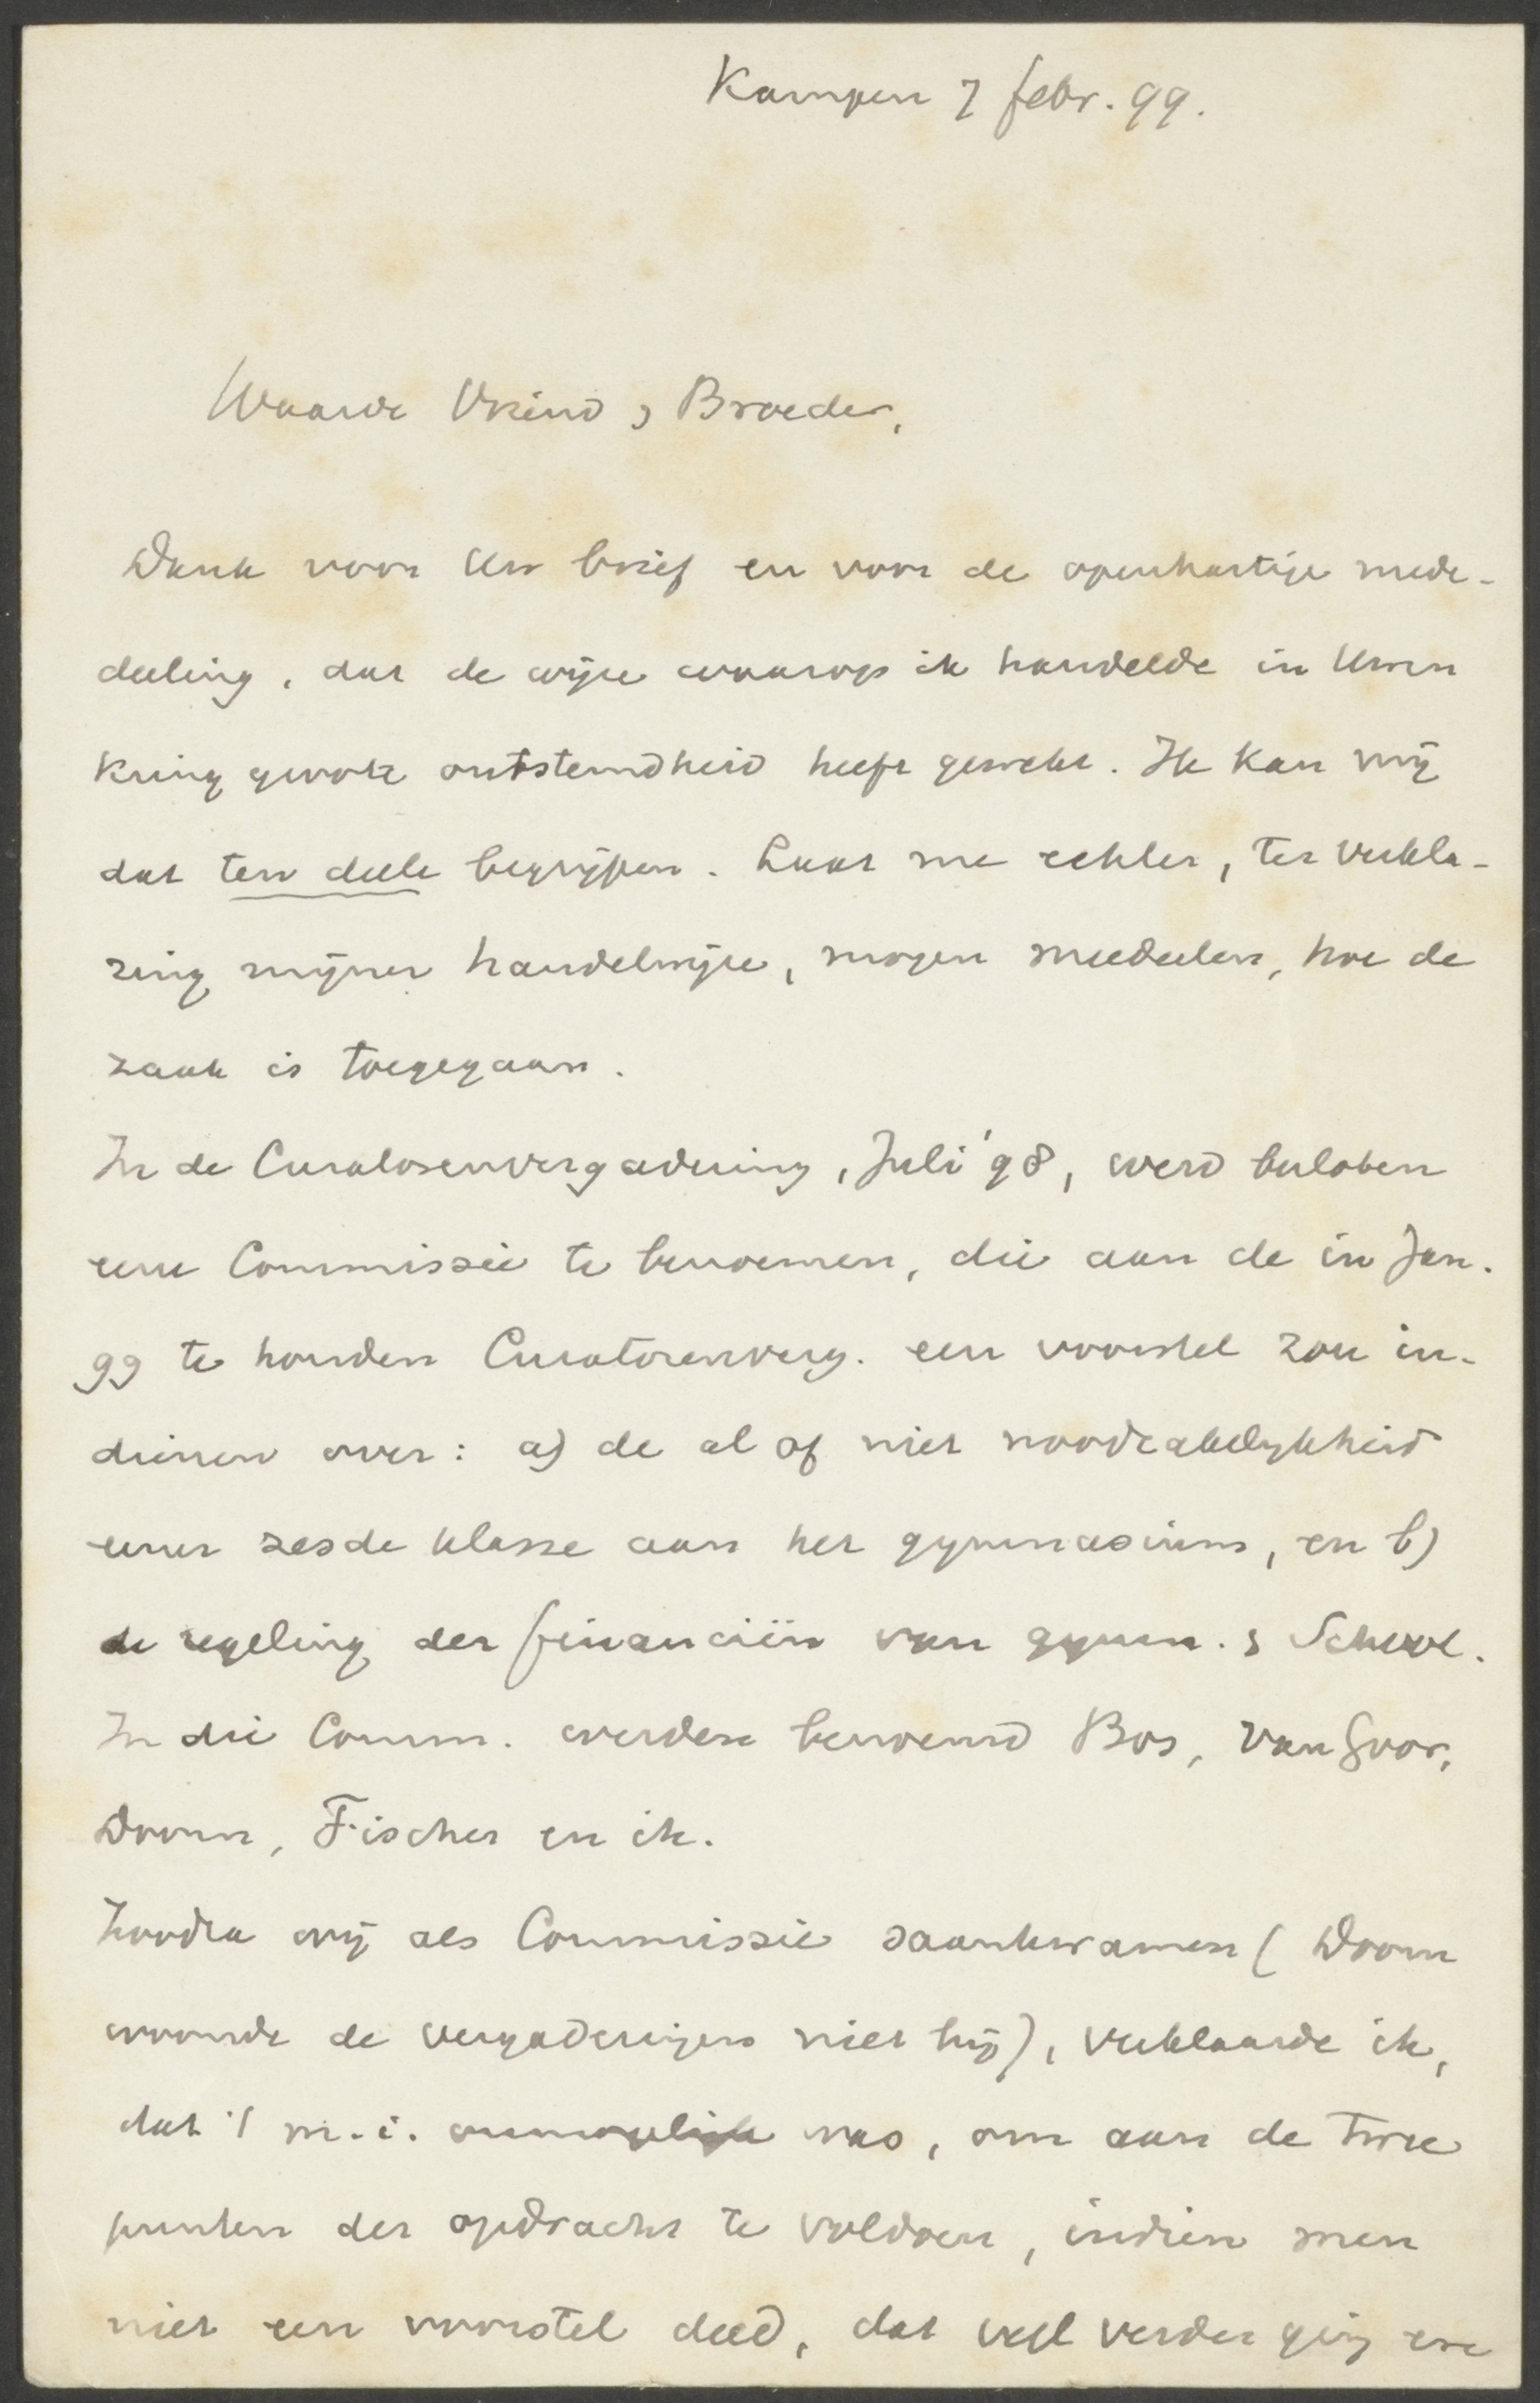 Kampen 7 febr. 99.
Waarde Vriend & Broeder,
Dank voor Uw brief en voor de openhartige mede-
deeling, dat de wijze waarop ik handelde in Uwen
kring groote ontstemdheid heeft gewekt. Ik kan mij
dat ten deele begrijpen. Laat me echter, ter verkla-
ring mijner handelwijze, mogen meedeelen, hoe de
zaak is toegegaan.
In de Curatorenvergadering, Juli '98, werd besloten
eene Commissie te benoemen, die aan de in Jan.
99 te houden Curatorenverg. een voorstel zou in-
dienen over: a) de al of niet noodzakelijkheid
eener zesde klasse aan het gymnasium, en b)
de regeling der financiën van gymn. & School.
In die Comm. werden benoemd Bos, van Goor,
Doorn, Fischer en ik.
Zoodra wij als Commissie saamkwamen (Doorn
woonde de vergaderingen niet bij), verklaarde ik,
dat 't m.i. onmogelijk was, om aan de twee
punten der opdracht te voldoen, indien men
niet een voorstel deed, dat veel verder ging en